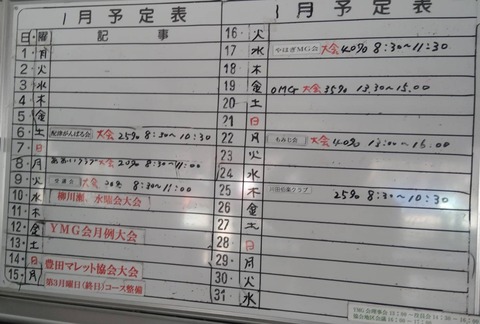 1月予定表
日・曜 記事
1・月
2・火
3・水
4・木
5・金
6・土 大会 25% 8:30~10:30
7・日
8・月 大会 20% 8:30~11:00
9・火 大会 30% 8:30~11:00
10・水 柳川瀬、水師会大会
11・木
12・金 YMG会月例大会
13・土
14・日 豊田マレット協会大会
15・月 第3月曜日(終日)コース整備
1月予定表
16・火
17・水 やはぎMG会 大会 40% 8:30~11:30
18・木
19・金 OMG 大会 35% 13:30~15:00
20・土
21・日
22・月 もみじ会 大会 40% 13:00~16:00
23・火
24・水
25・木 25% 8:30~10:30
26・金
27・土
28・日
29・月
30・火
31・水